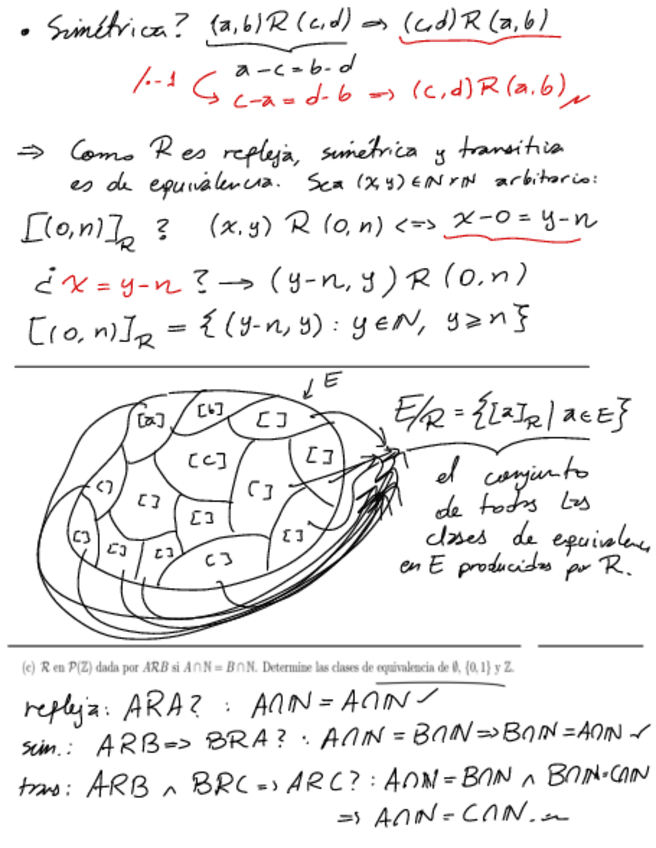 • Simétrica? (a,b) R (c,d) => (c,d) R (a,b)
a-c = b-d
/·-1 c-a = d-b => (c,d) R (a,b)
=> Como R es refleja, simétrica y transitiva
es de equivalencia. Sea (x,y) ∈ ℕ×ℕ arbitario:
[(0,n)]_R ? (x,y) R (0,n) <=> x-0 = y-n
¿x = y-n? → (y-n, y) R (0,n)
[(0,n)]_R = {(y-n, y) : y ∈ ℕ, y ⩾ n}
↓ E
[a] [b] [ ]
[c] [ ]
[ ] [ ] [ ]
[ ]
[ ] [ ] [ ] [ ] [ ]
E/R = {[a]_R | a ∈ E}
el conjunto
de todas las
clases de equivalenc
en E producidas por R.
(c) R en P(ℤ) dada por ARB si A∩ℕ = B∩ℕ. Determine las clases de equivalencia de ∅, {0, 1} y ℤ.
refleja: ARA? : A∩ℕ = A∩ℕ ✓
sim.: ARB => BRA? : A∩ℕ = B∩ℕ => B∩ℕ = A∩ℕ ✓
trans: ARB ∧ BRC => ARC? : A∩ℕ = B∩ℕ ∧ B∩ℕ = C∩ℕ
=> A∩ℕ = C∩ℕ.